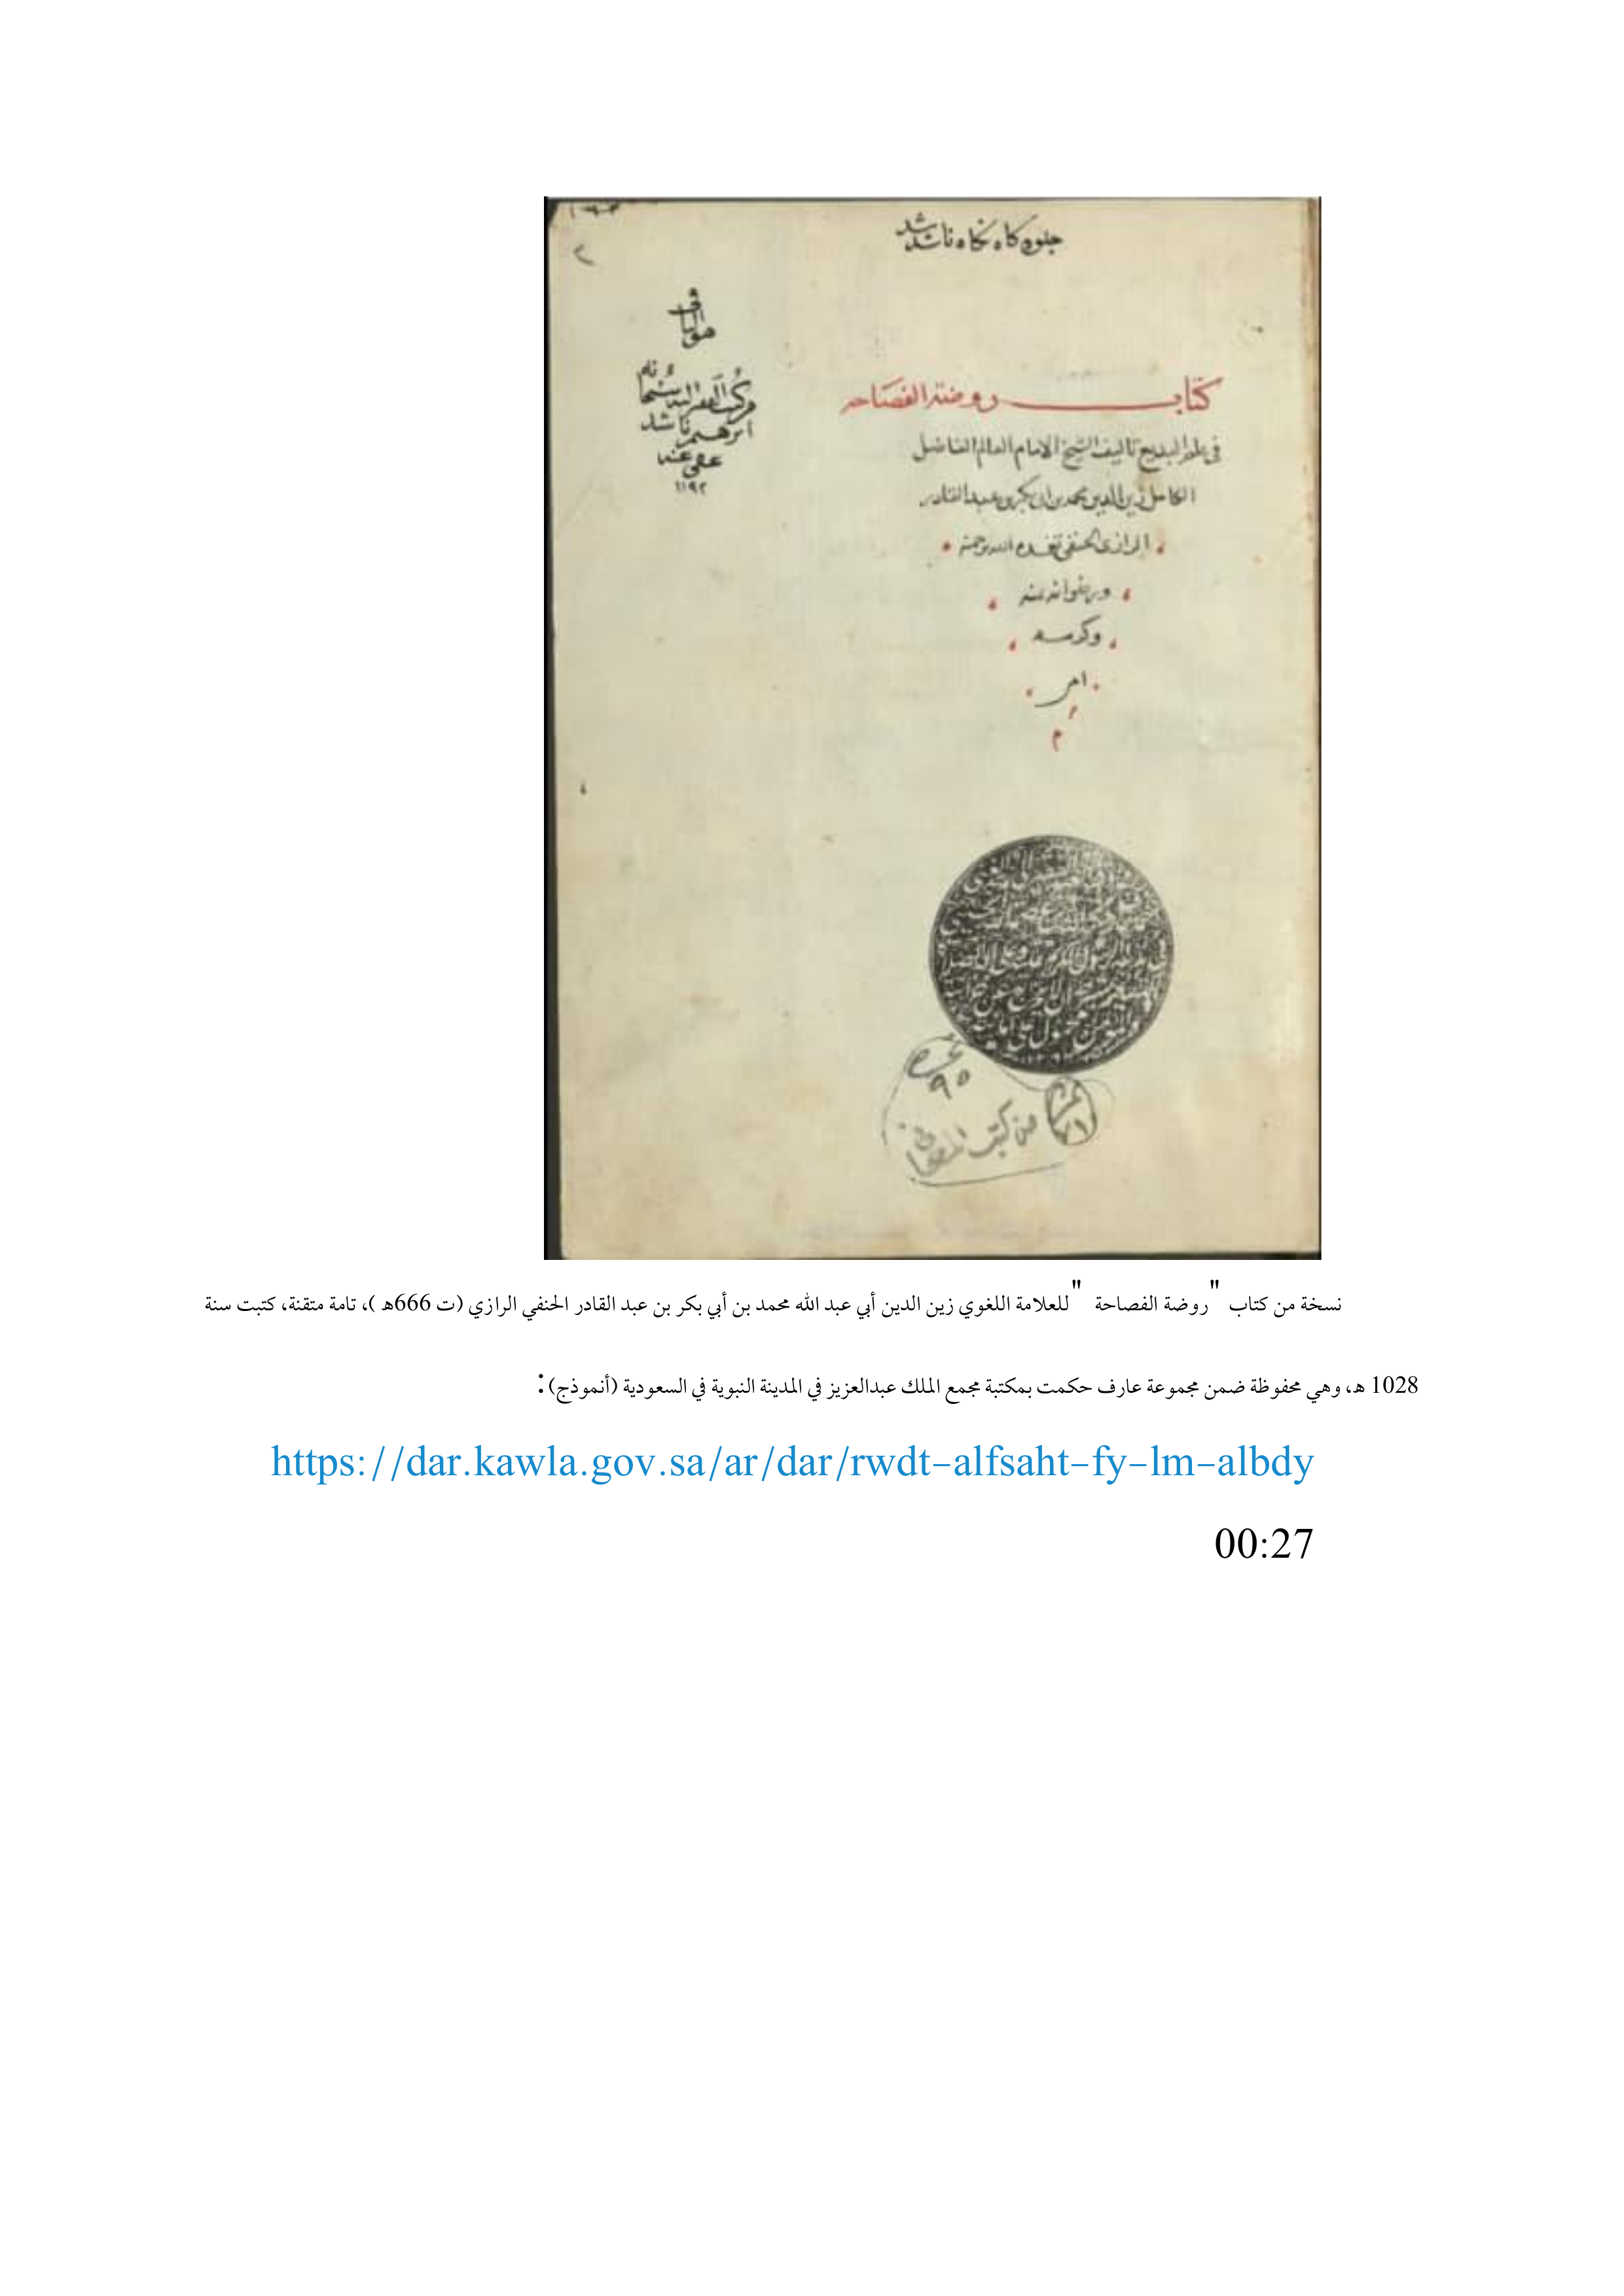 جلوه كاه نكاه ناشد شد
هو الباقي
من كتب الفقير اليه سبحانه
ابرهيم ناشد
عفي عنه
١١٩٢
كتاب روضة الفصاحه
في علم البديع تاليف الشيخ الامام العالم الفاضل
الكامل زين الدين محمد بن ابي بكر بن عبد القادر
الرازي الحنفي تغمده الله برحمته
ورضوانه بمنه
وكرمه
امين
م
نمره
٩٥
من كتب المعاني
نسخة من كتاب "روضة الفصاحة " للعلامة اللغوي زين الدين أبي عبد الله محمد بن أبي بكر بن عبد القادر الحنفي الرازي (ت 666هـ )، تامة متقنة، كتبت سنة
1028 هـ، وهي محفوظة ضمن مجموعة عارف حكمت بمكتبة مجمع الملك عبدالعزيز في المدينة النبوية في السعودية (أنموذج):
https://dar.kawla.gov.sa/ar/dar/rwdt-alfsaht-fy-lm-albdy
00:27